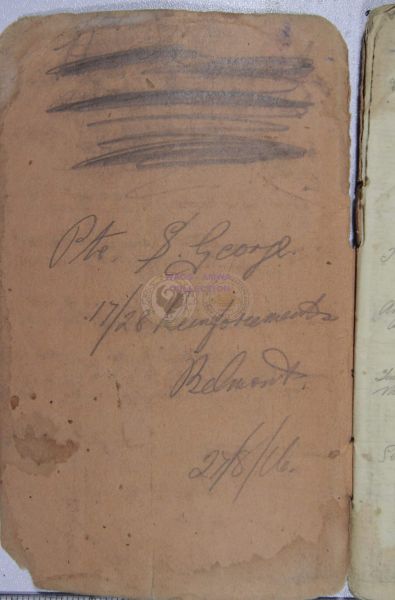 Pte. S. George.
17/28 Reinforcements
Belmont.
27/8/16.